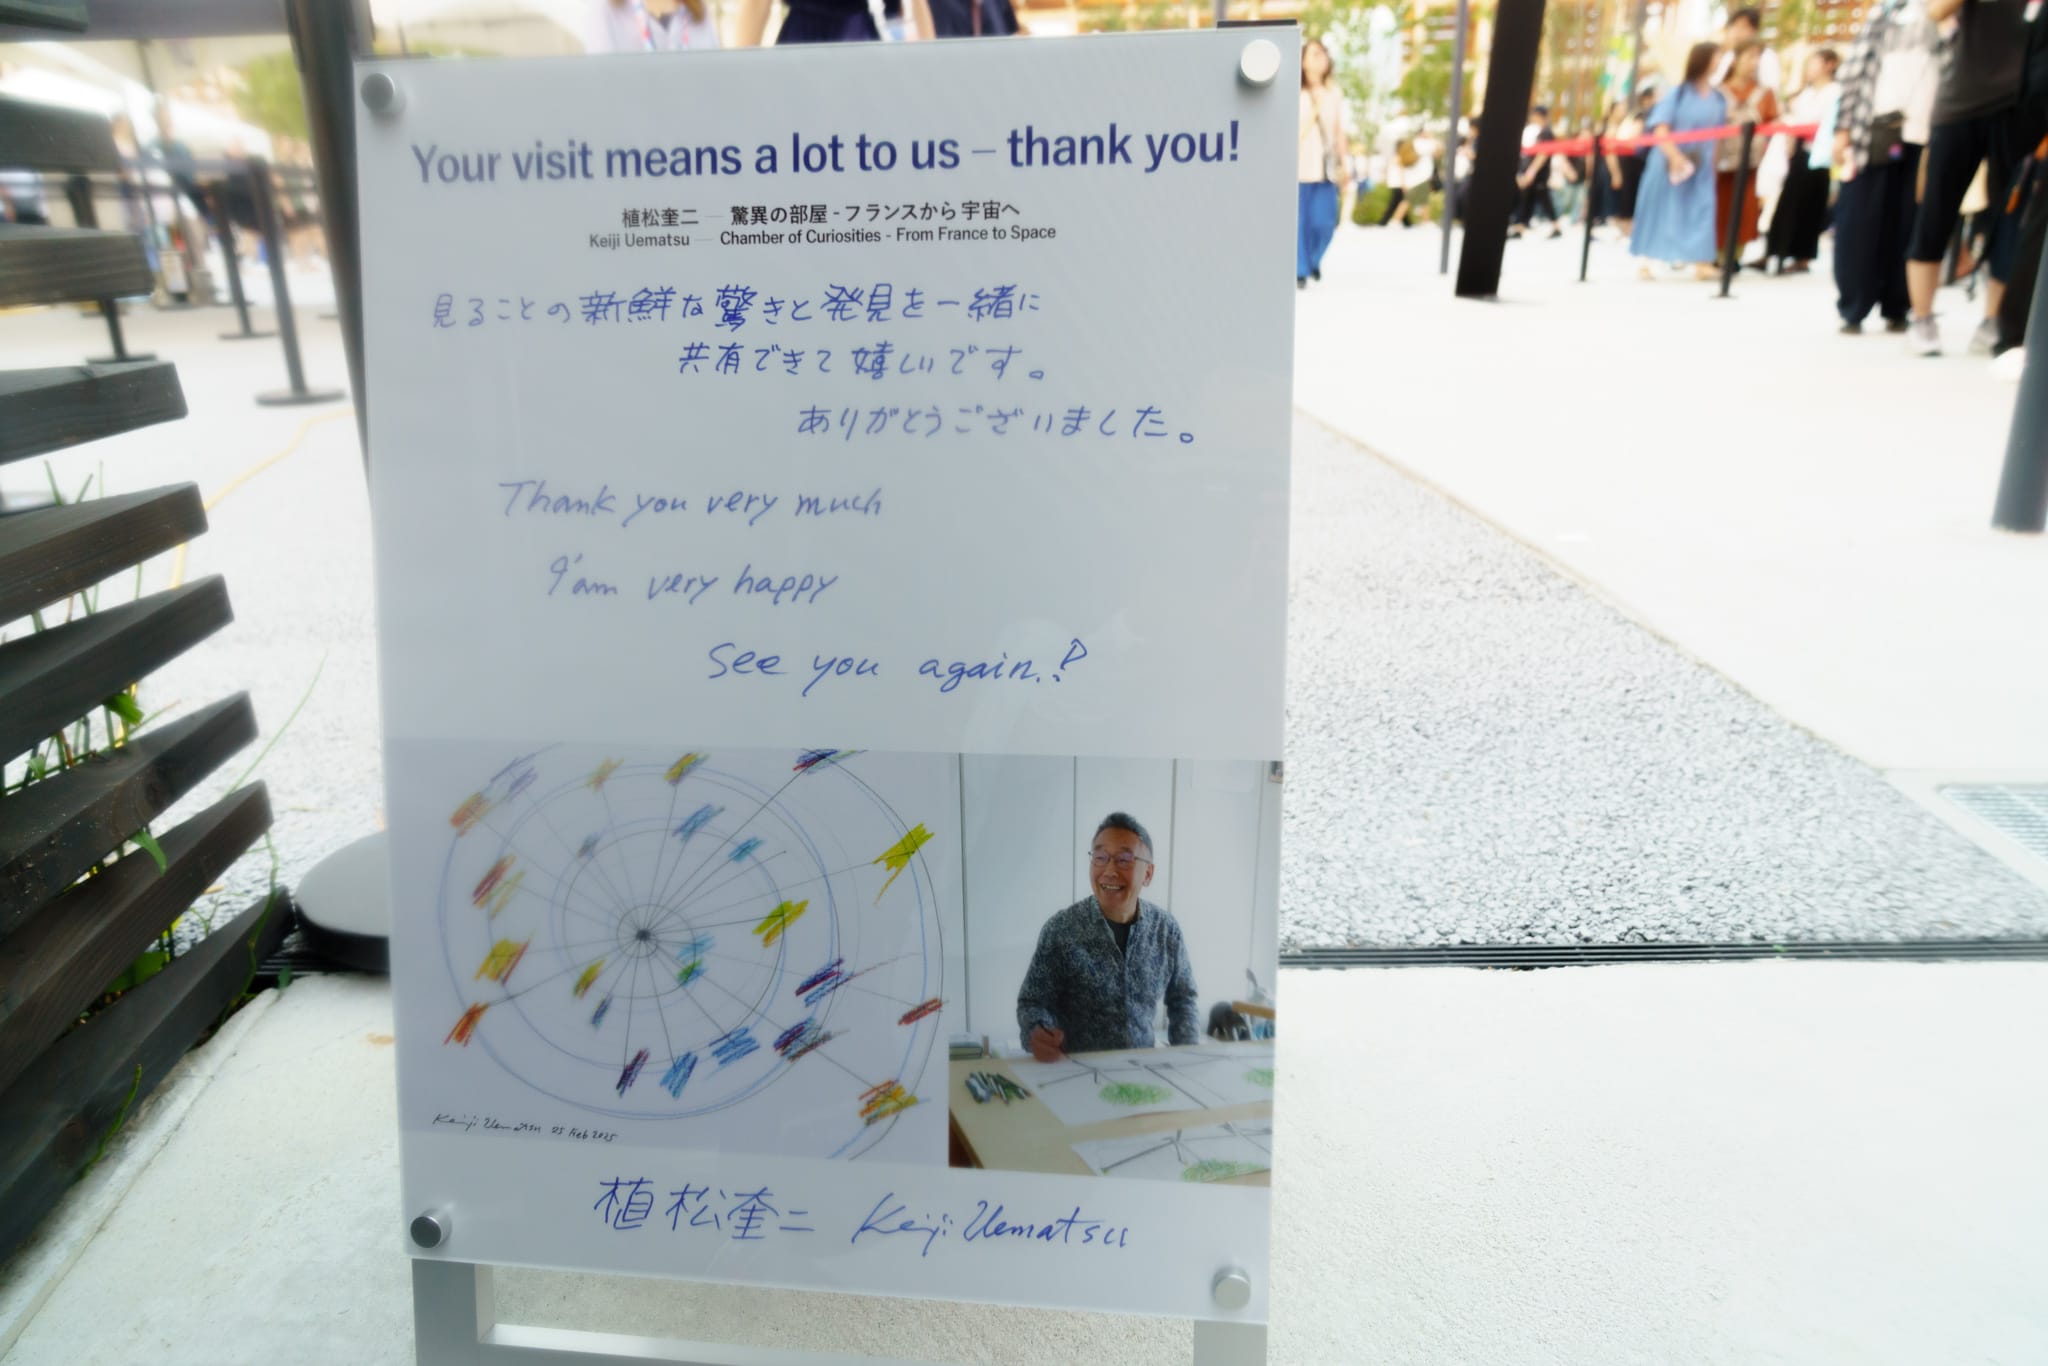 Your visit means a lot to us – thank you!
植松奎二 — 驚異の部屋 - フランスから 宇宙へ
Keiji Uematsu — Chamber of Curiosities - From France to Space
見ることの新鮮な驚きと発見を一緒に
共有できて嬉しいです。
ありがとうございました。
Thank you very much
I'am very happy
See you again.!
Keiji Uematsu 25 Feb 2025
植松奎二 Keiji Uematsu